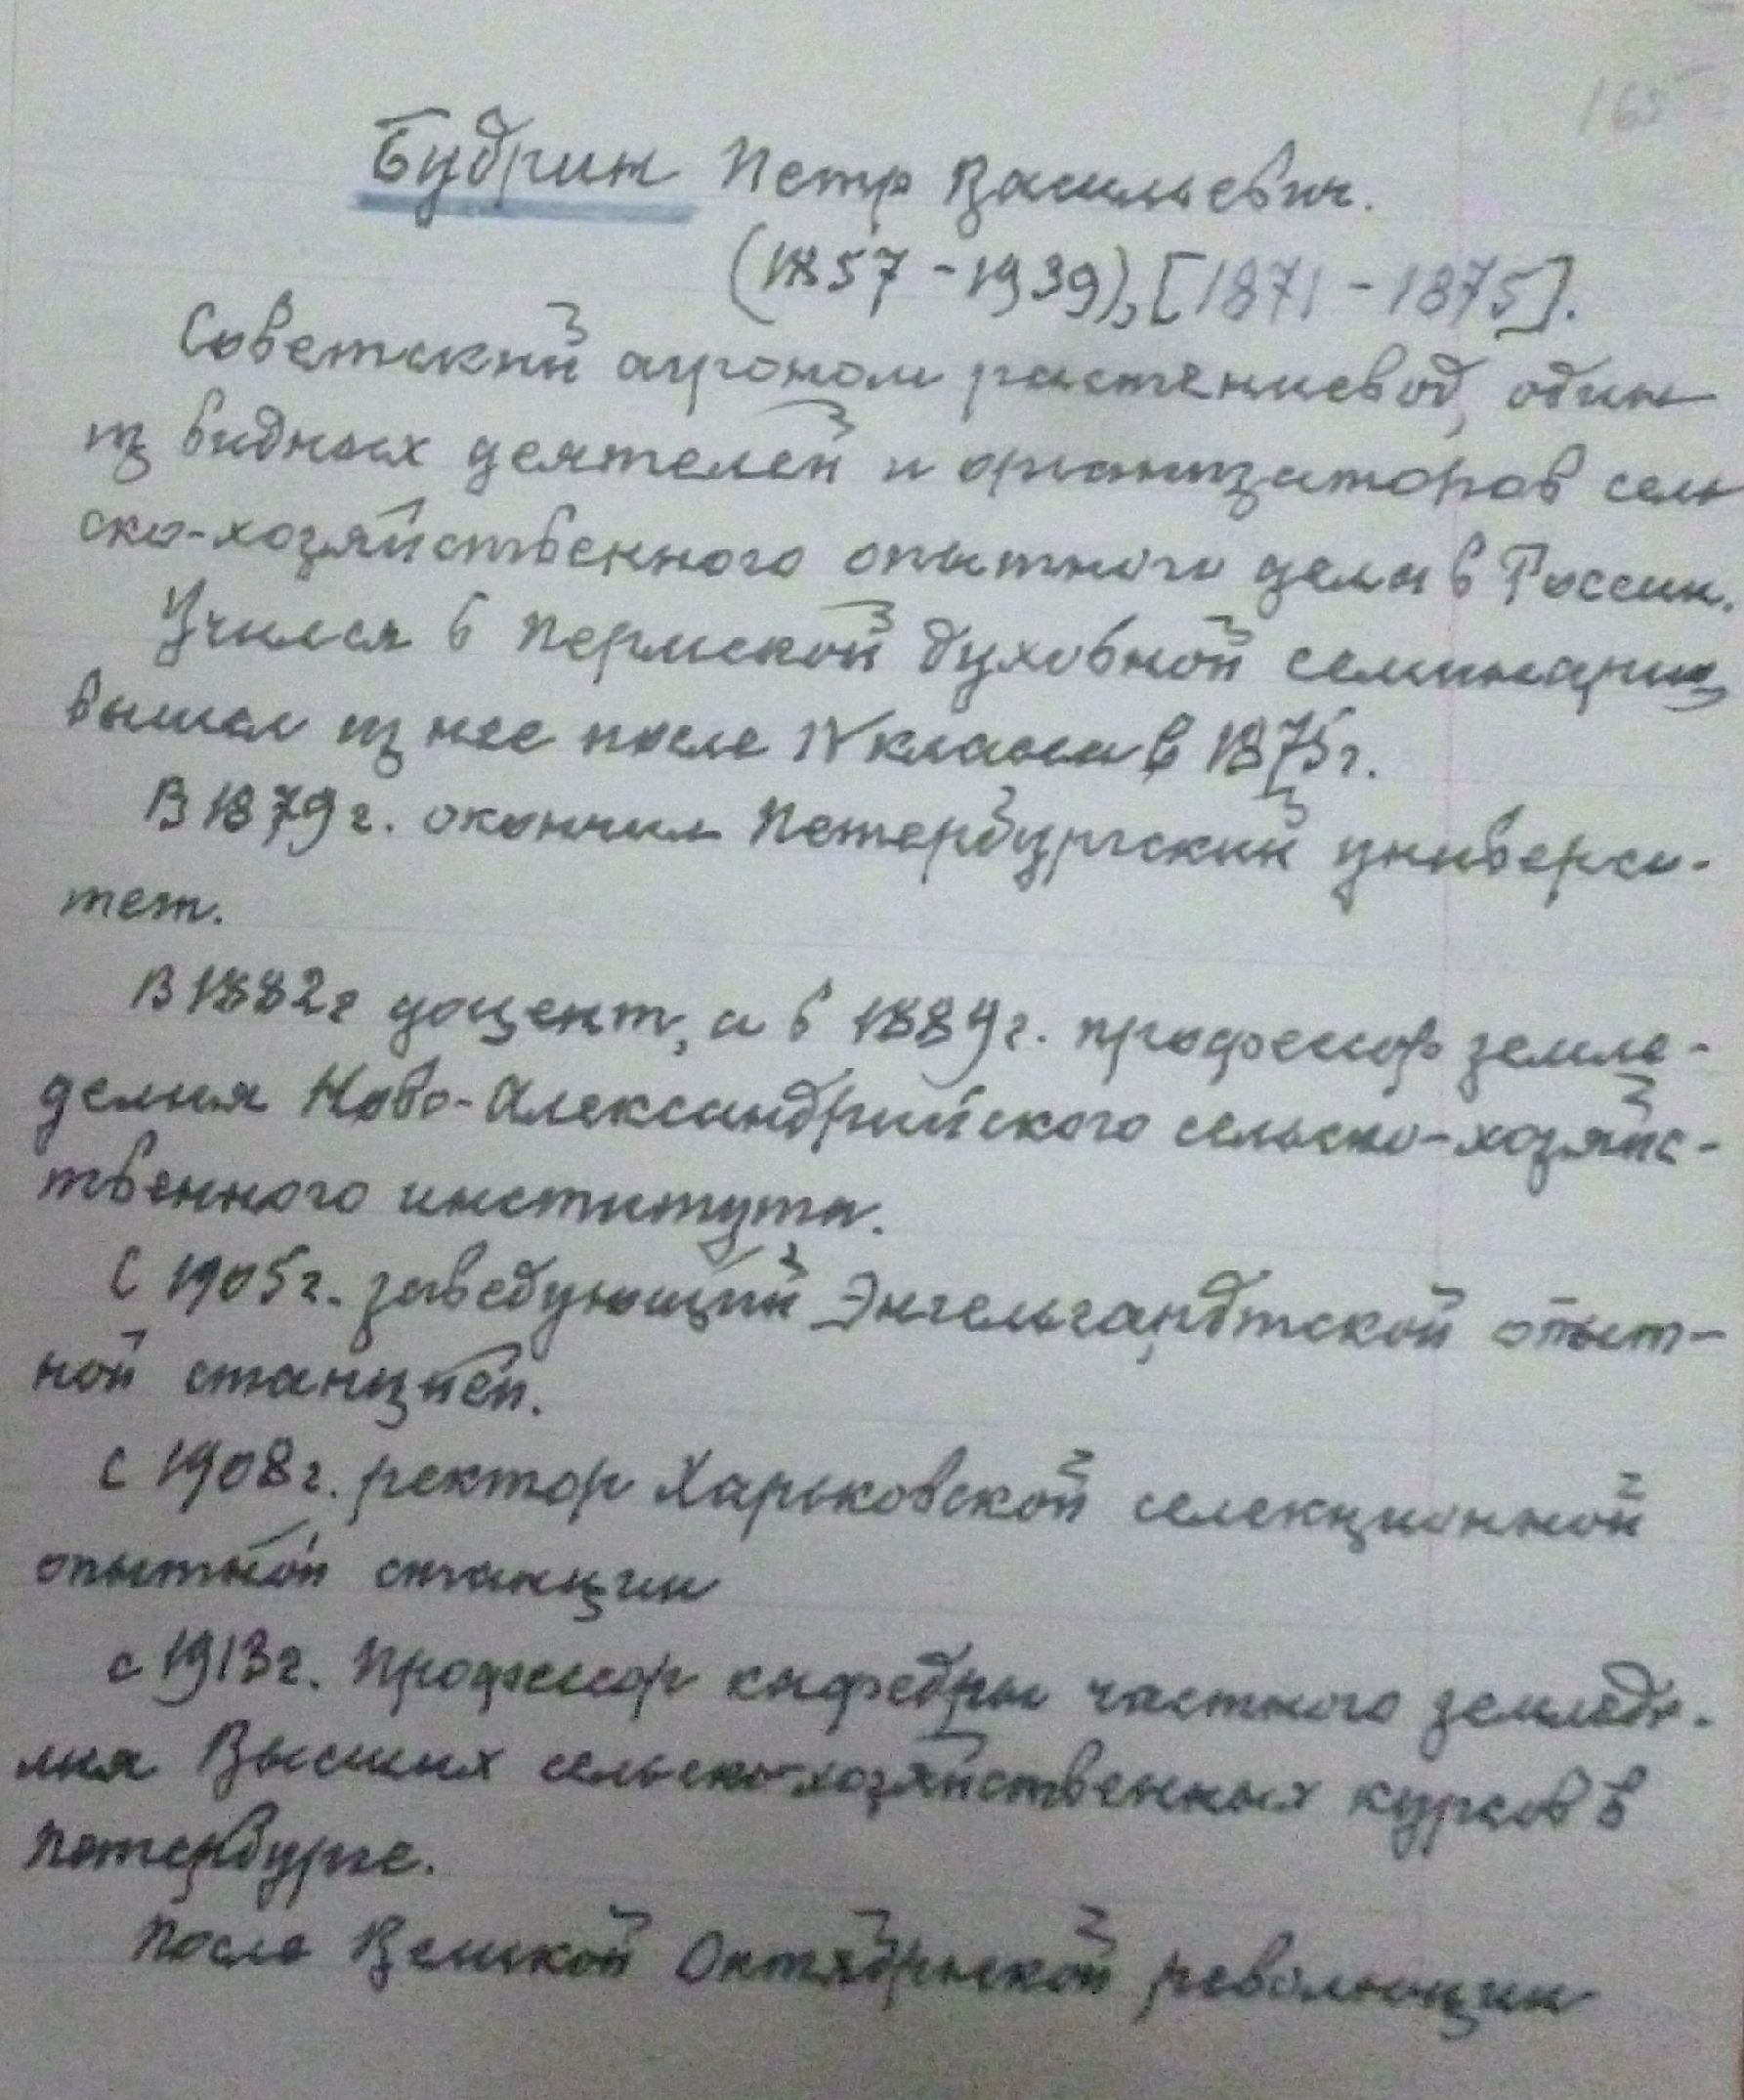 Будрин Петр Васильевич.
(1857-1939), [1871-1875].
Советский агроном растениевод, один
из видных деятелей и организаторов сель
ско-хозяйственного опытного дела в России.
Учился в Пермской духовной семинарии,
вышел из нее после IV класса в 1875 г.
В 1879 г. окончил Петербургский универси-
тет.
В 1882 г доцент, а в 1889 г. профессор земле-
делия Ново-Александрийского сельско-хозяйс-
твенного института.
С 1905 г. заведующий Энгельгардтской опыт-
ной станцией.
с 1908 г. ректор Харьковской селекционной
опытной станции
с 1913 г. Профессор кафедры частного земледе-
лия Высших сельско-хозяйственных курсов в
Петербурге.
После Великой Октябрьской революции